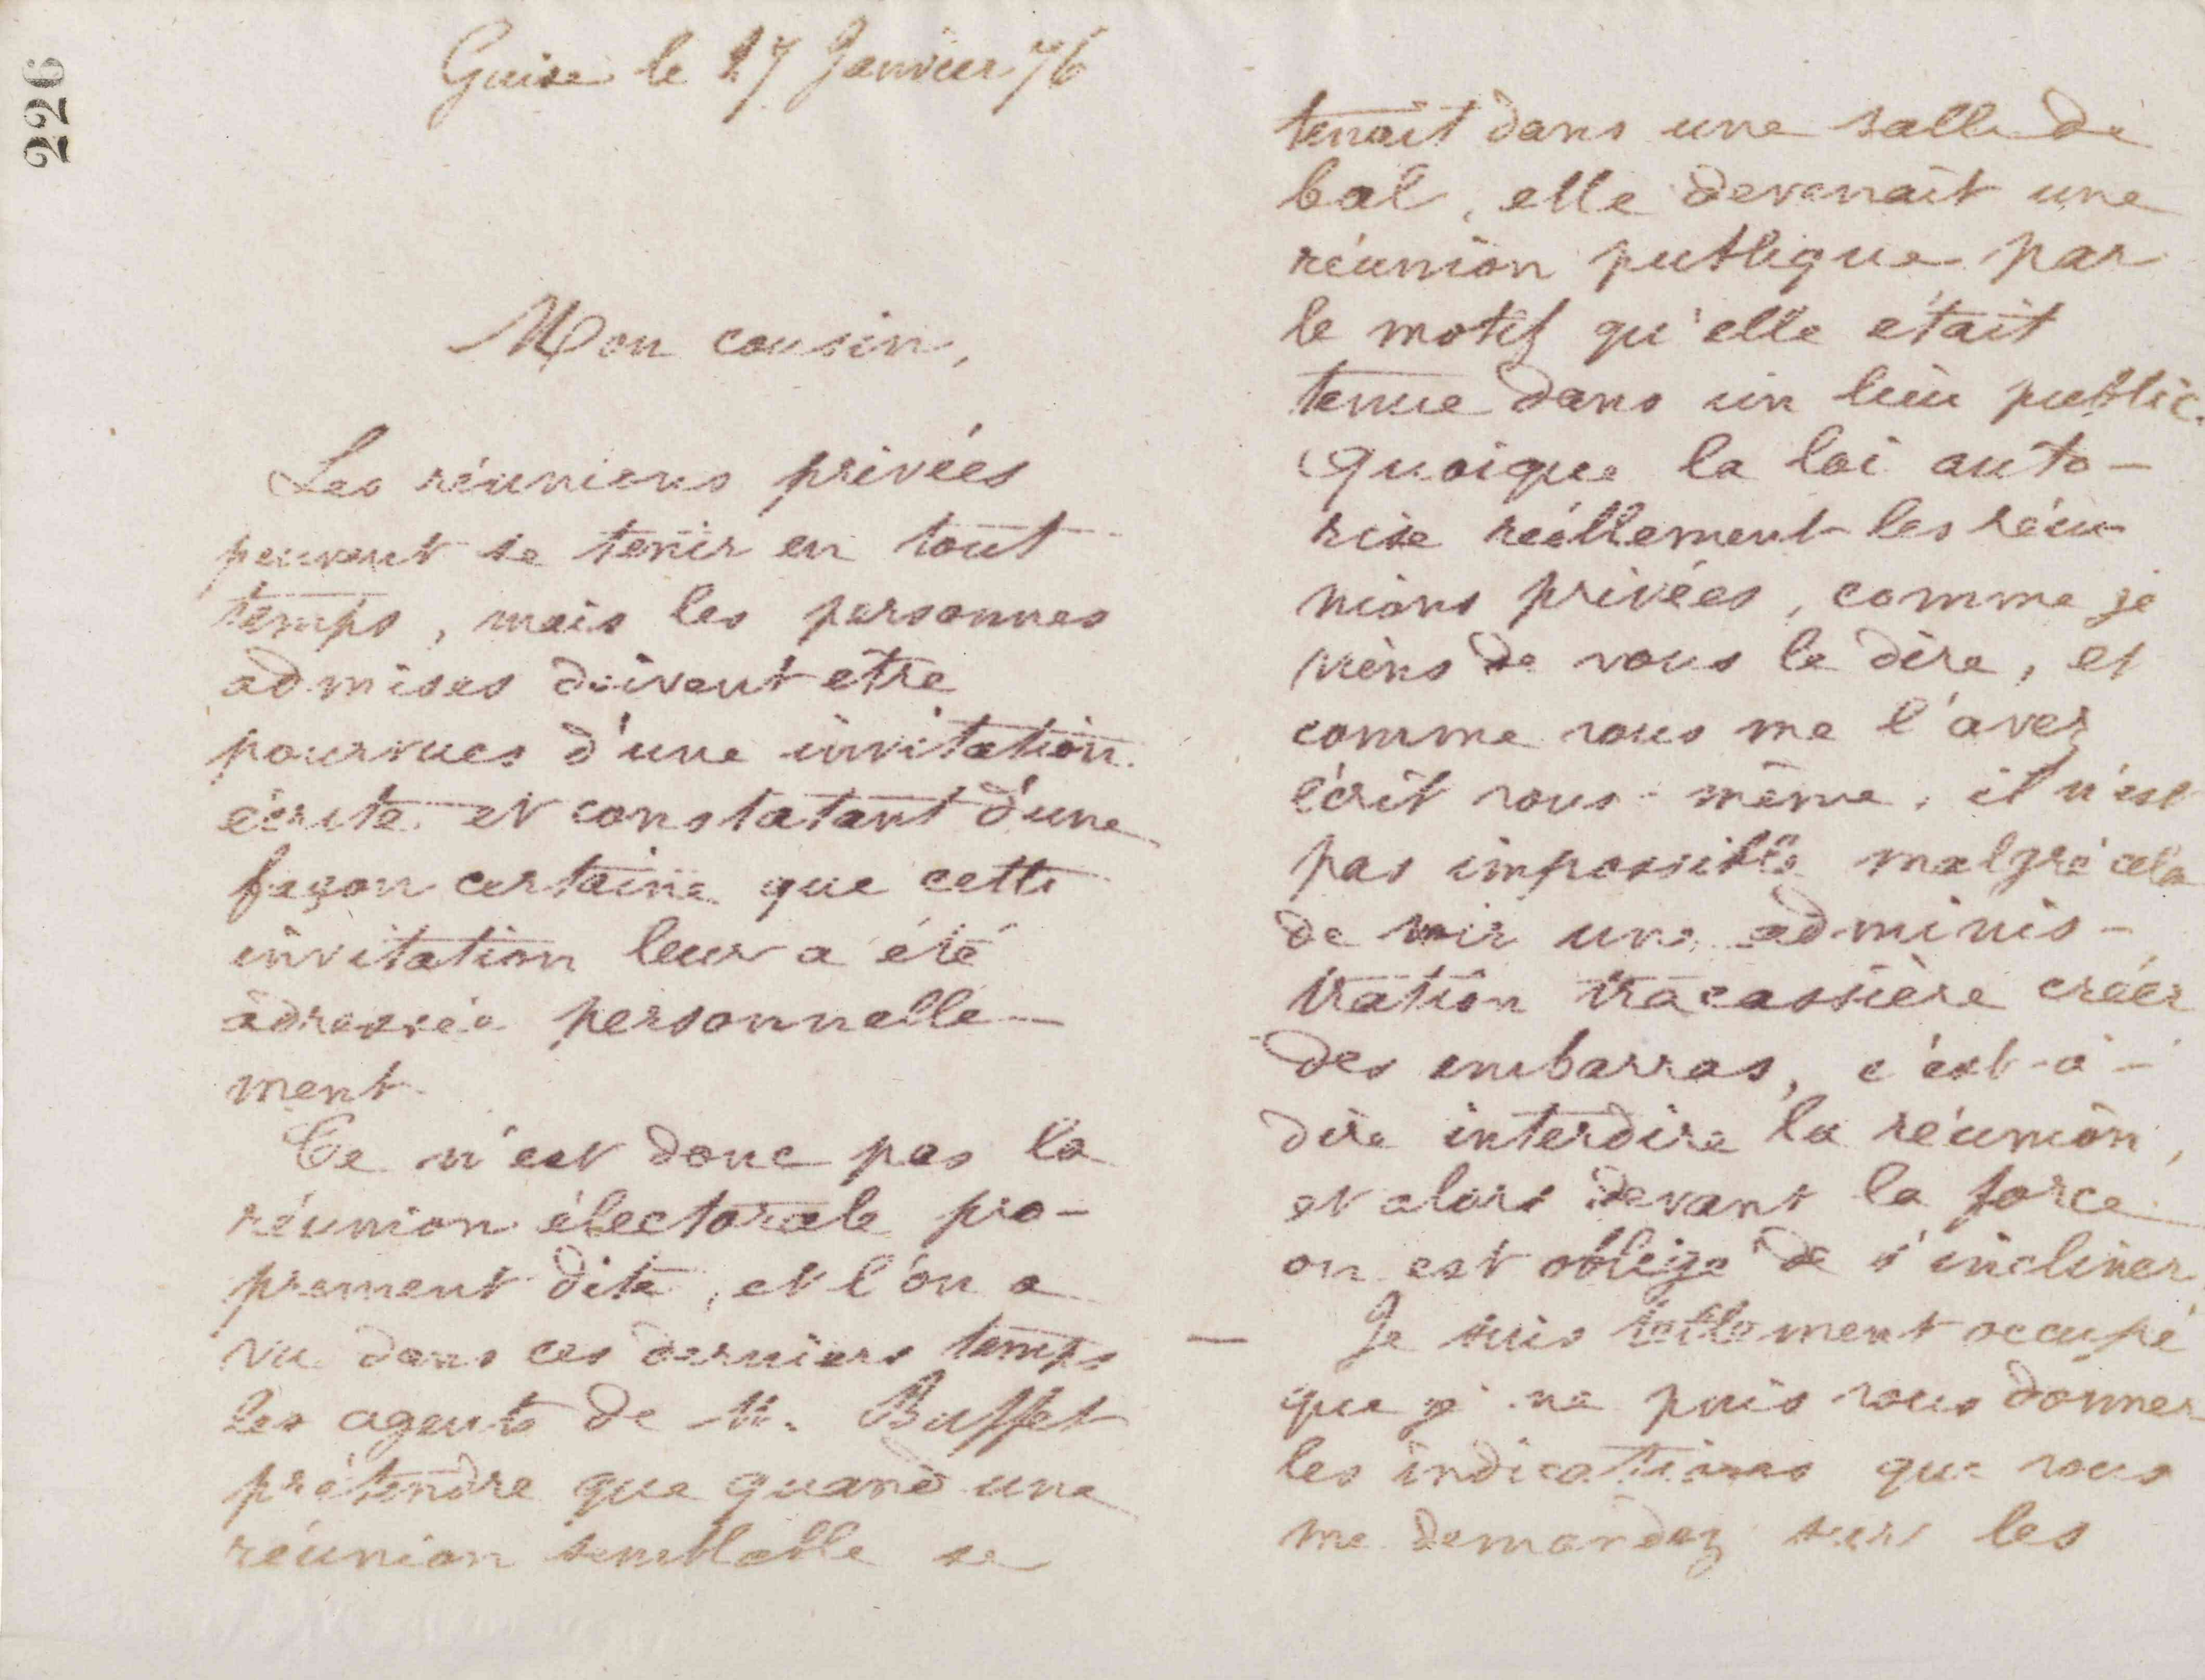 226
Guise le 27 Janvier 76
Mon cousin,
Les réunions privées
peuvent se tenir en tout
temps, mais les personnes
admises doivent etre
pourvues d'une invitation
écrite et constatant d'une
façon certaine que cette
invitation leur a été
adressée personnelle-
ment.
Ce n'est donc pas la
réunion électorale pro-
prement dite, et l'on a
vu dans ces derniers temps
les agents de M. Buffet
prétendre que quand une
réunion semblable se
tenait dans une salle de
bal, elle devenait une
réunion publique par
le motif qu'elle était
tenue dans un lieu public.
Quoique la loi auto-
rise réellement les réu-
nions privées, comme je
viens de vous le dire, et
comme vous me l'avez
écrit vous-même, il n'est
pas impossible malgré cela
de voir une adminis-
tration tracassière créer
des embarras, c'est-à-
dire interdire la réunion,
et alors devant la force
on est obligé de s'incliner
— Je suis tellement occupé
que je ne puis vous donner
les indications que vous
me demandez sur les